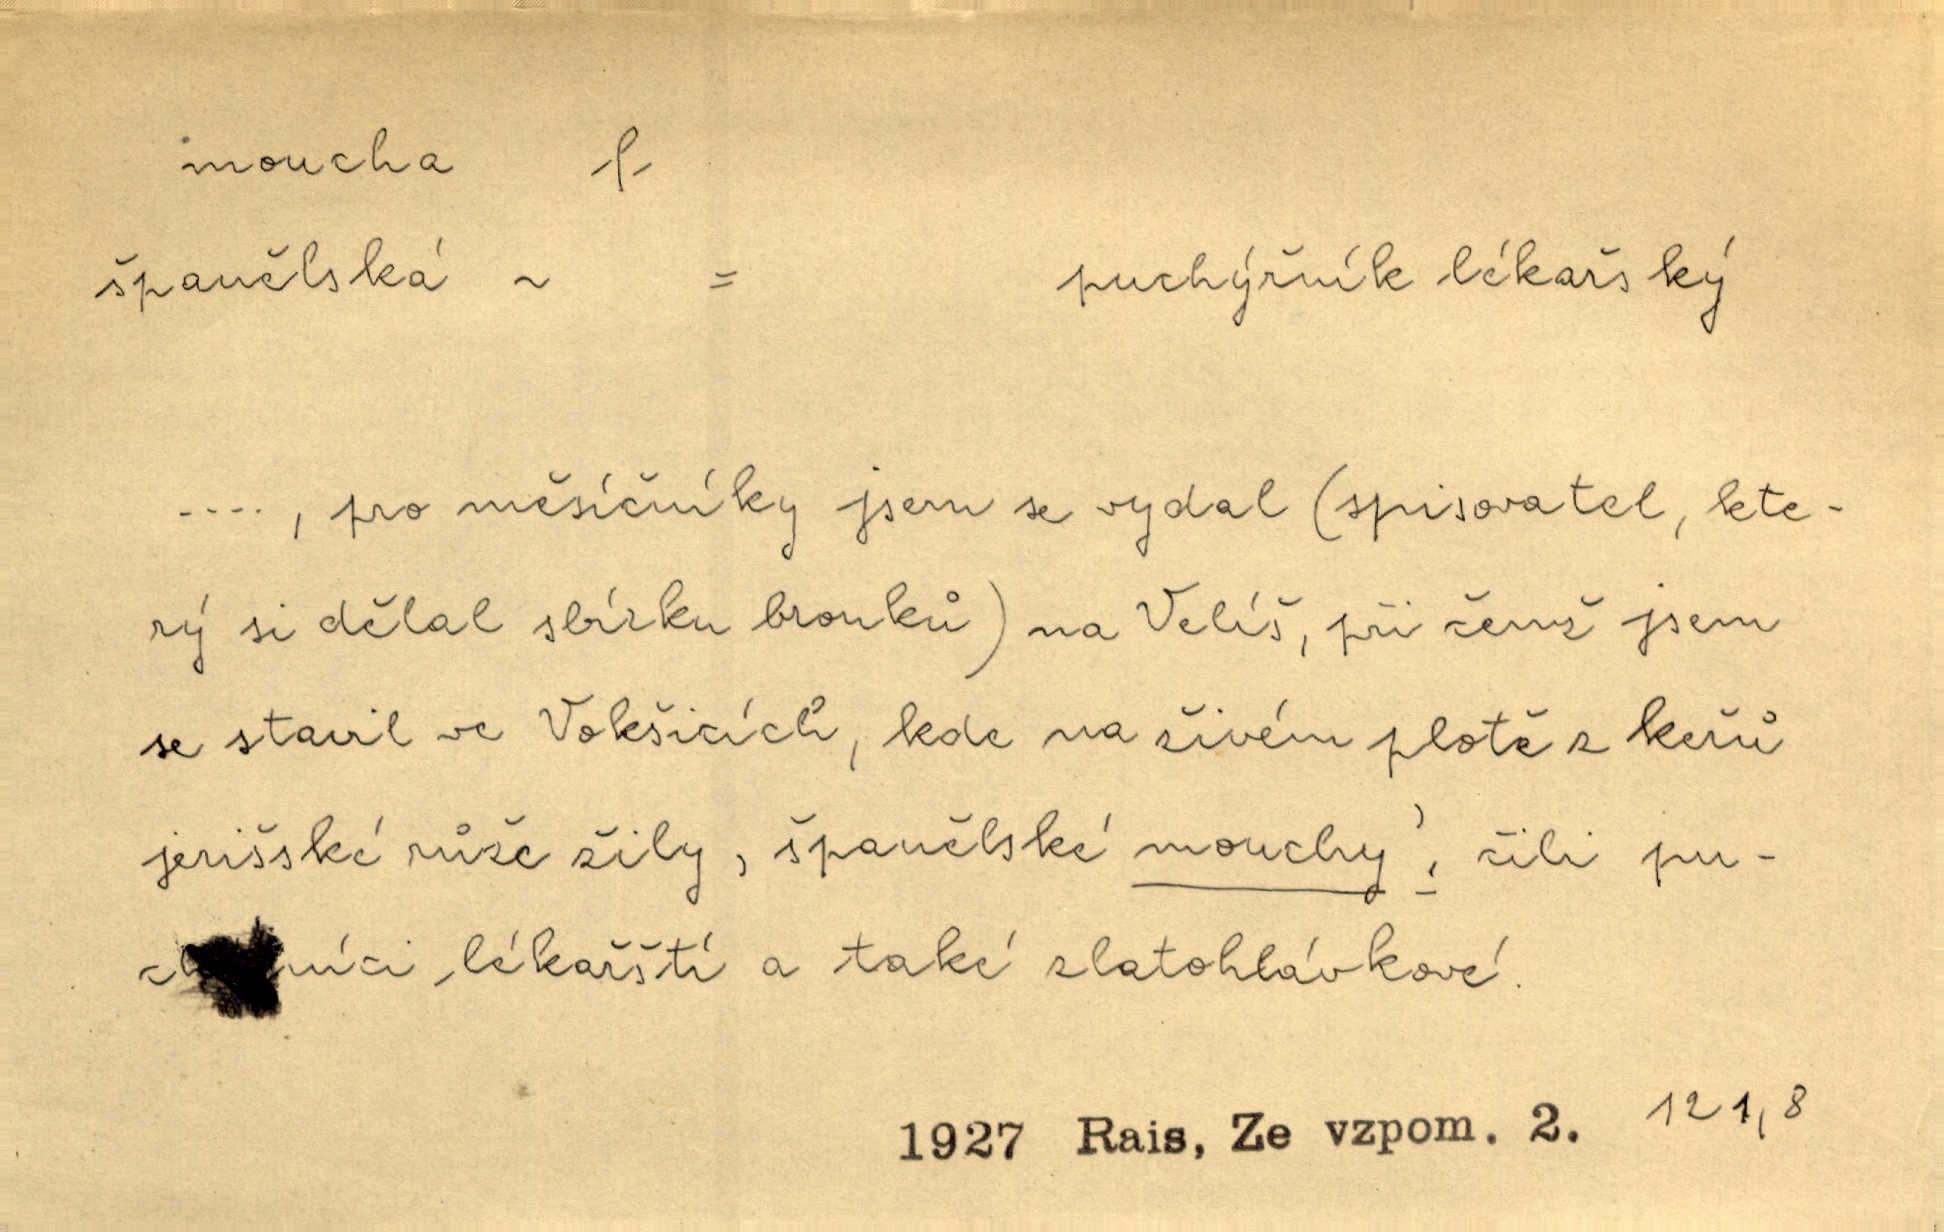 moucha f.
španělská ~ = puchýřník lékařský
...., pro měsíčníky jsem se vydal (spisovatel, kte-
rý si dělal sbírku brouků) na Veliš, při čemž jsem
se stavil ve Vokšicích, kde na živém plotě z keřů
jerišské růže žily ,španělské mouchy', čili pu-
níci lékařští a také zlatohlávkové.
1927 Rais, Ze vzpom. 2. 121,8